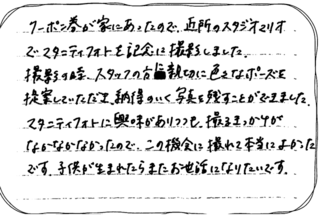 クーポン券が家にあったので、近所のスタジオマリオ
でマタニティフォトを記念に撮影しました。
撮影の時、スタッフの方に親切に色々なポーズを
提案していただき、納得のいく写真を残すことができました。
マタニティフォトに興味がありつつも、撮るきっかけが
なかなかなかったので、この機会に撮れて本当によかった
です。子供が生まれたらまたお世話になりたいです。